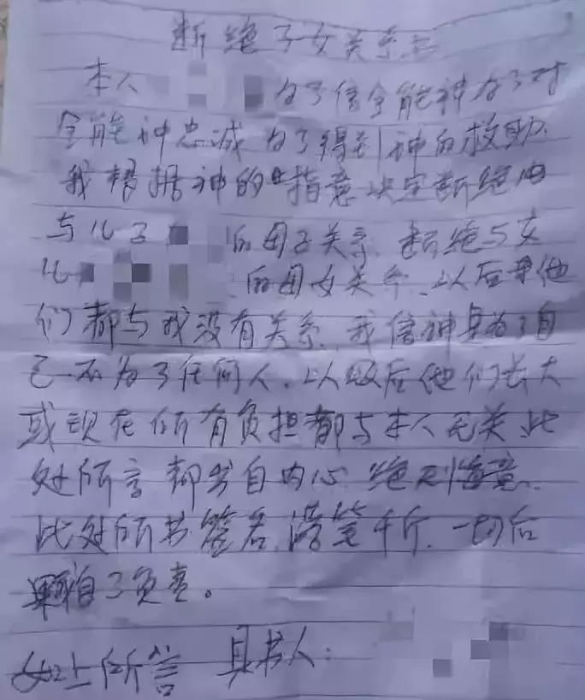 断绝子女关系书
本人 为了信全能神为了对
全能神忠诚 为了得到神的救助.
我根据神的"指意决定断绝由
与儿子 的母子关系. 断绝与女
儿 的母女关系. 以后他
们都与我没有关系. 我信神是为了自
己不为了任何人. 以后他们长大
或现在所有负担都与本人无关. 此
处所言都出自内心 绝不悔意.
此处所书签名. 落笔千斤. 一切后
果自己负责。
如上所言 具书人: